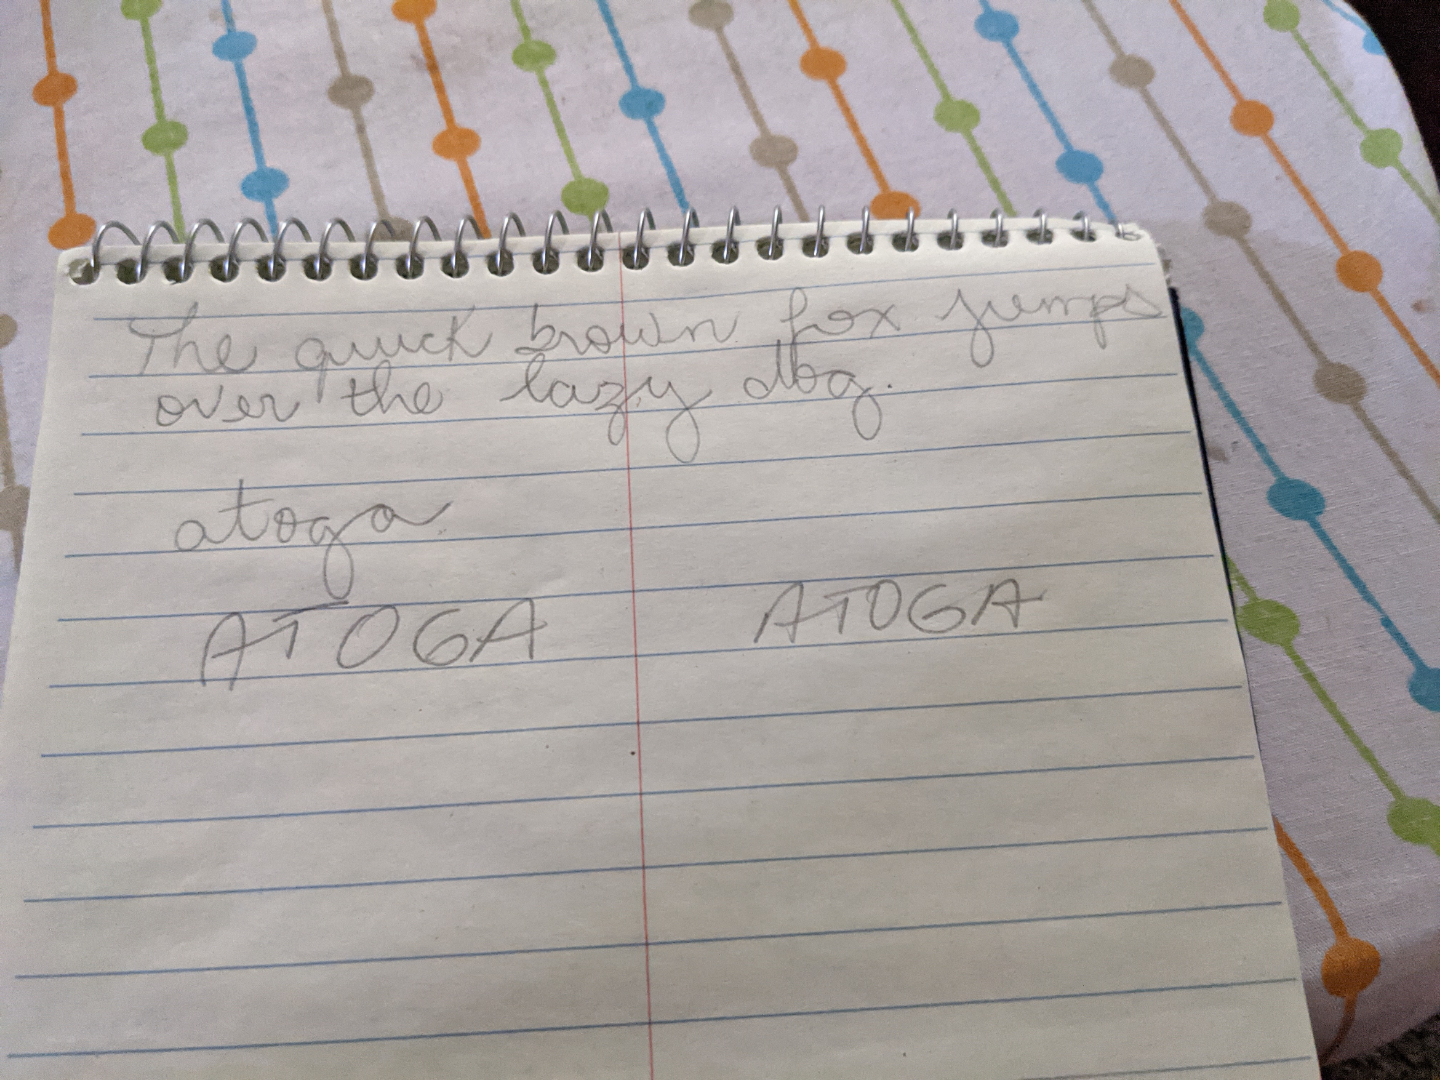 The quick brown fox jumps
over the lazy dog.
atoga
ATOGA ATOGA